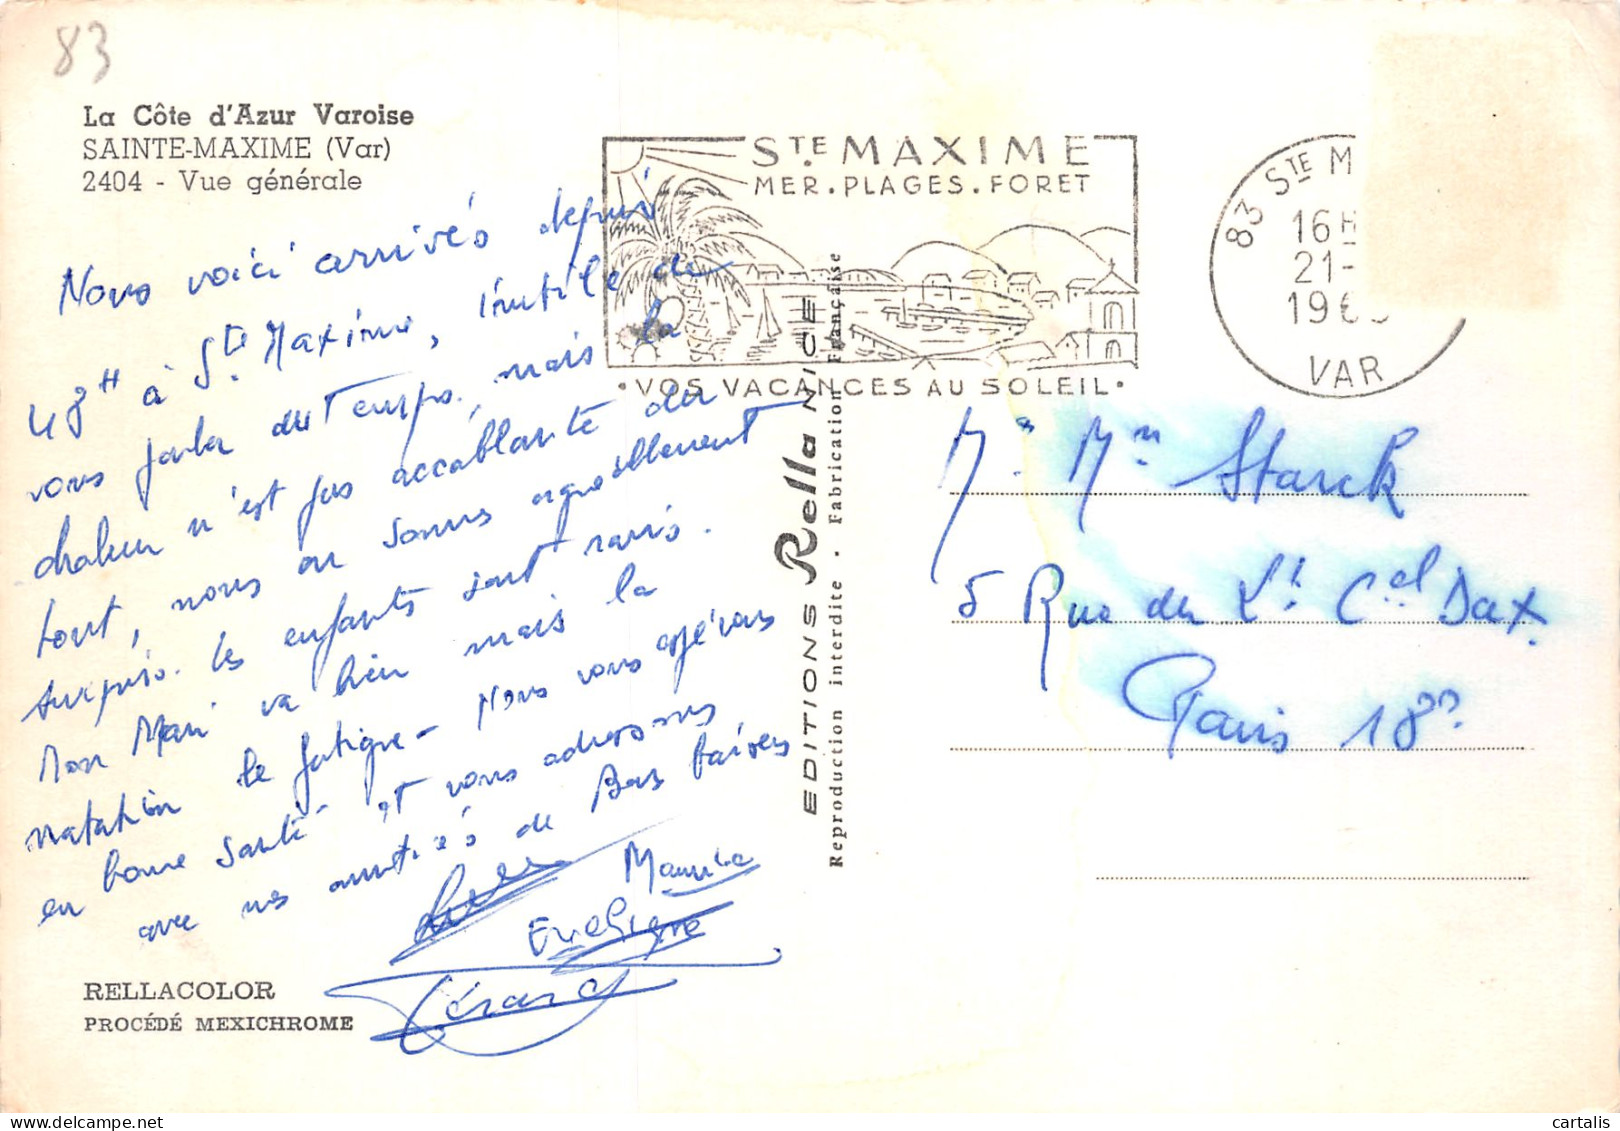 83
La Côte d'Azur Varoise
SAINTE-MAXIME (Var)
2404 - Vue générale
Nous voici arrivés depuis
48H à Ste Maxime, inutile de
vous parler du Temps, mais la
chaleur n'est pas accablante du
tout, nous en sommes agréablement
surpris. les enfants sont ravis.
Mon Mari va bien mais la
natation le fatigue - Nous vous espérons
en bonne santé et vous adressons
avec nos amitiés de Bons baisers
Maurice
Evelyne
Gérard
RELLACOLOR
PROCÉDÉ MEXICHROME
EDITIONS Rella NICE
Reproduction interdite - Fabrication Française
STE MAXIME
MER. PLAGES. FORET
• VOS VACANCES AU SOLEIL •
83 STE M
16H
21-
196
VAR
Mr Mme Starck
5 Rue du Lt Cel Dax
Paris 18e
cartalis